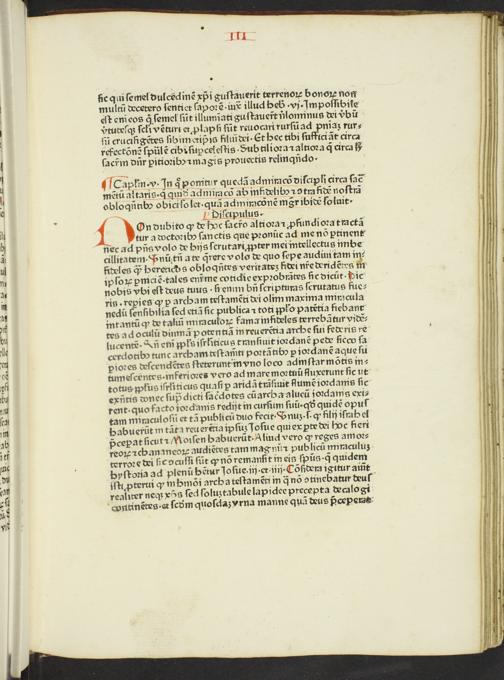 III
sic qui semel dulcedinē xp̄i gustaverit terrenoꝝ bonoꝝ non
multū decetero sentiet saporē · iux̄ illud heb̄ · vi · Impossibile
est eni eos q̄ semel sūt illuminati gustaverūt
virtutesqꝫ sc̄li vēturi et ꝓlapsi sūt revocari rursū ad pn̄iaꝫ rur
sū crucifigētes sibimetip̄is filiū dei · Et hec tibi sufficiāt circa
refectionē sp̄ūlē cibi suꝑcelestis · Subtiliora et altiora q̄ circa
sacrm̄ dn̄r ꝑitioribꝫ et magis provectis relinquēdo ·
Caplm̄ · v · In q̄ ponitur quedā admiracō discipli circa sac̄
mētū altaris · q̄ quidē admiracō ab infidelibꝫ et ctra fidē nostrā
obloquētibꝫ obici solet · quā admiracionē mgr̄ ibidē soluit ·
Discipulus ·
Non dubito qꝫ de hoc sacro altiora et ꝓfundiora tractā
tur a doctoribꝫ sanctis que pronūc ad me nō ꝑtinent
nec ad pn̄s volo de hijs scrutari ꝓpter mei intellectus imbe
cillitatem · Sꝫ tn̄ a te q̄rere volo de quo sepe audivi tam in
fideles qꝫ hereticos obloquētes veritateꝫ fidei nr̄e deridētes in
ipsorꝫ ꝑniciē · tales enī me cotidie exprobrātes sic dicūt · Hic
nobis vbi est deus tuus · si enim bn̄ scripturas scrutatus fue
ris · repies qꝫ ꝑ archam testamēti dei olim maxima miracula
nedū sensibilia sed etiā sic publica et toti ipso patētia fiebant
intantū qꝫ de taliū miraculoꝝ fama infideles terrebātur vidē
tes ad oculū divinā potentiā in reverētia arche sui federis re
lucentē · Nā eni ꝓpl̄s isrl̄iticus transiuit iordanē pede sicco sa
cerdotibꝫ tunc archam testamēti portātibꝫ ꝑ iordanē aque su
piores descendētes steterunt in vno loco ad instar mōtis in
tumescentes · inferiores vero ad mare mortuū fluxerunt sic vt
totus ꝓpl̄sus isrl̄iticus quasi ꝑ aridā trāsiuit flumē iordanis sic
exn̄tis donec supͣ dicti sac̄dotes cū archa alueū iordanis exi
rent · quo facto iordanis redijt in cursum suū · qꝫ quidē opus
tam miraculosū et tā publicū duo fecit · Vnuꝫ · s · qꝫ filij israhel
habuerūt in tāta reuerētia ipsuꝫ Iosue qui ex ꝑte dei hoc fieri
p̄cepat sicut et Moisen habuerūt · Aliud vero qꝫ reges amor
reoꝝ et chananeoꝝ audiētes tam magnū et publicū miraculuꝫ
terrore dei sic ꝓcussi sūt qꝫ nō remansit in eis sp̄us · q̄ quidem
hystoria ad plenū hētur Iosue · iij · et · iiij · Cōsidera igitur aiūt
isti ꝓpterui qꝫ in hmōi archa testamēti in q̄ nō otinebatur deus
realiter neqꝫ xp̄us sed soluꝫ tabule lapidee precepta decalogi
gotinētes · et scdm̄ quosdaꝫ vrna manne quā deus p̄ceperat